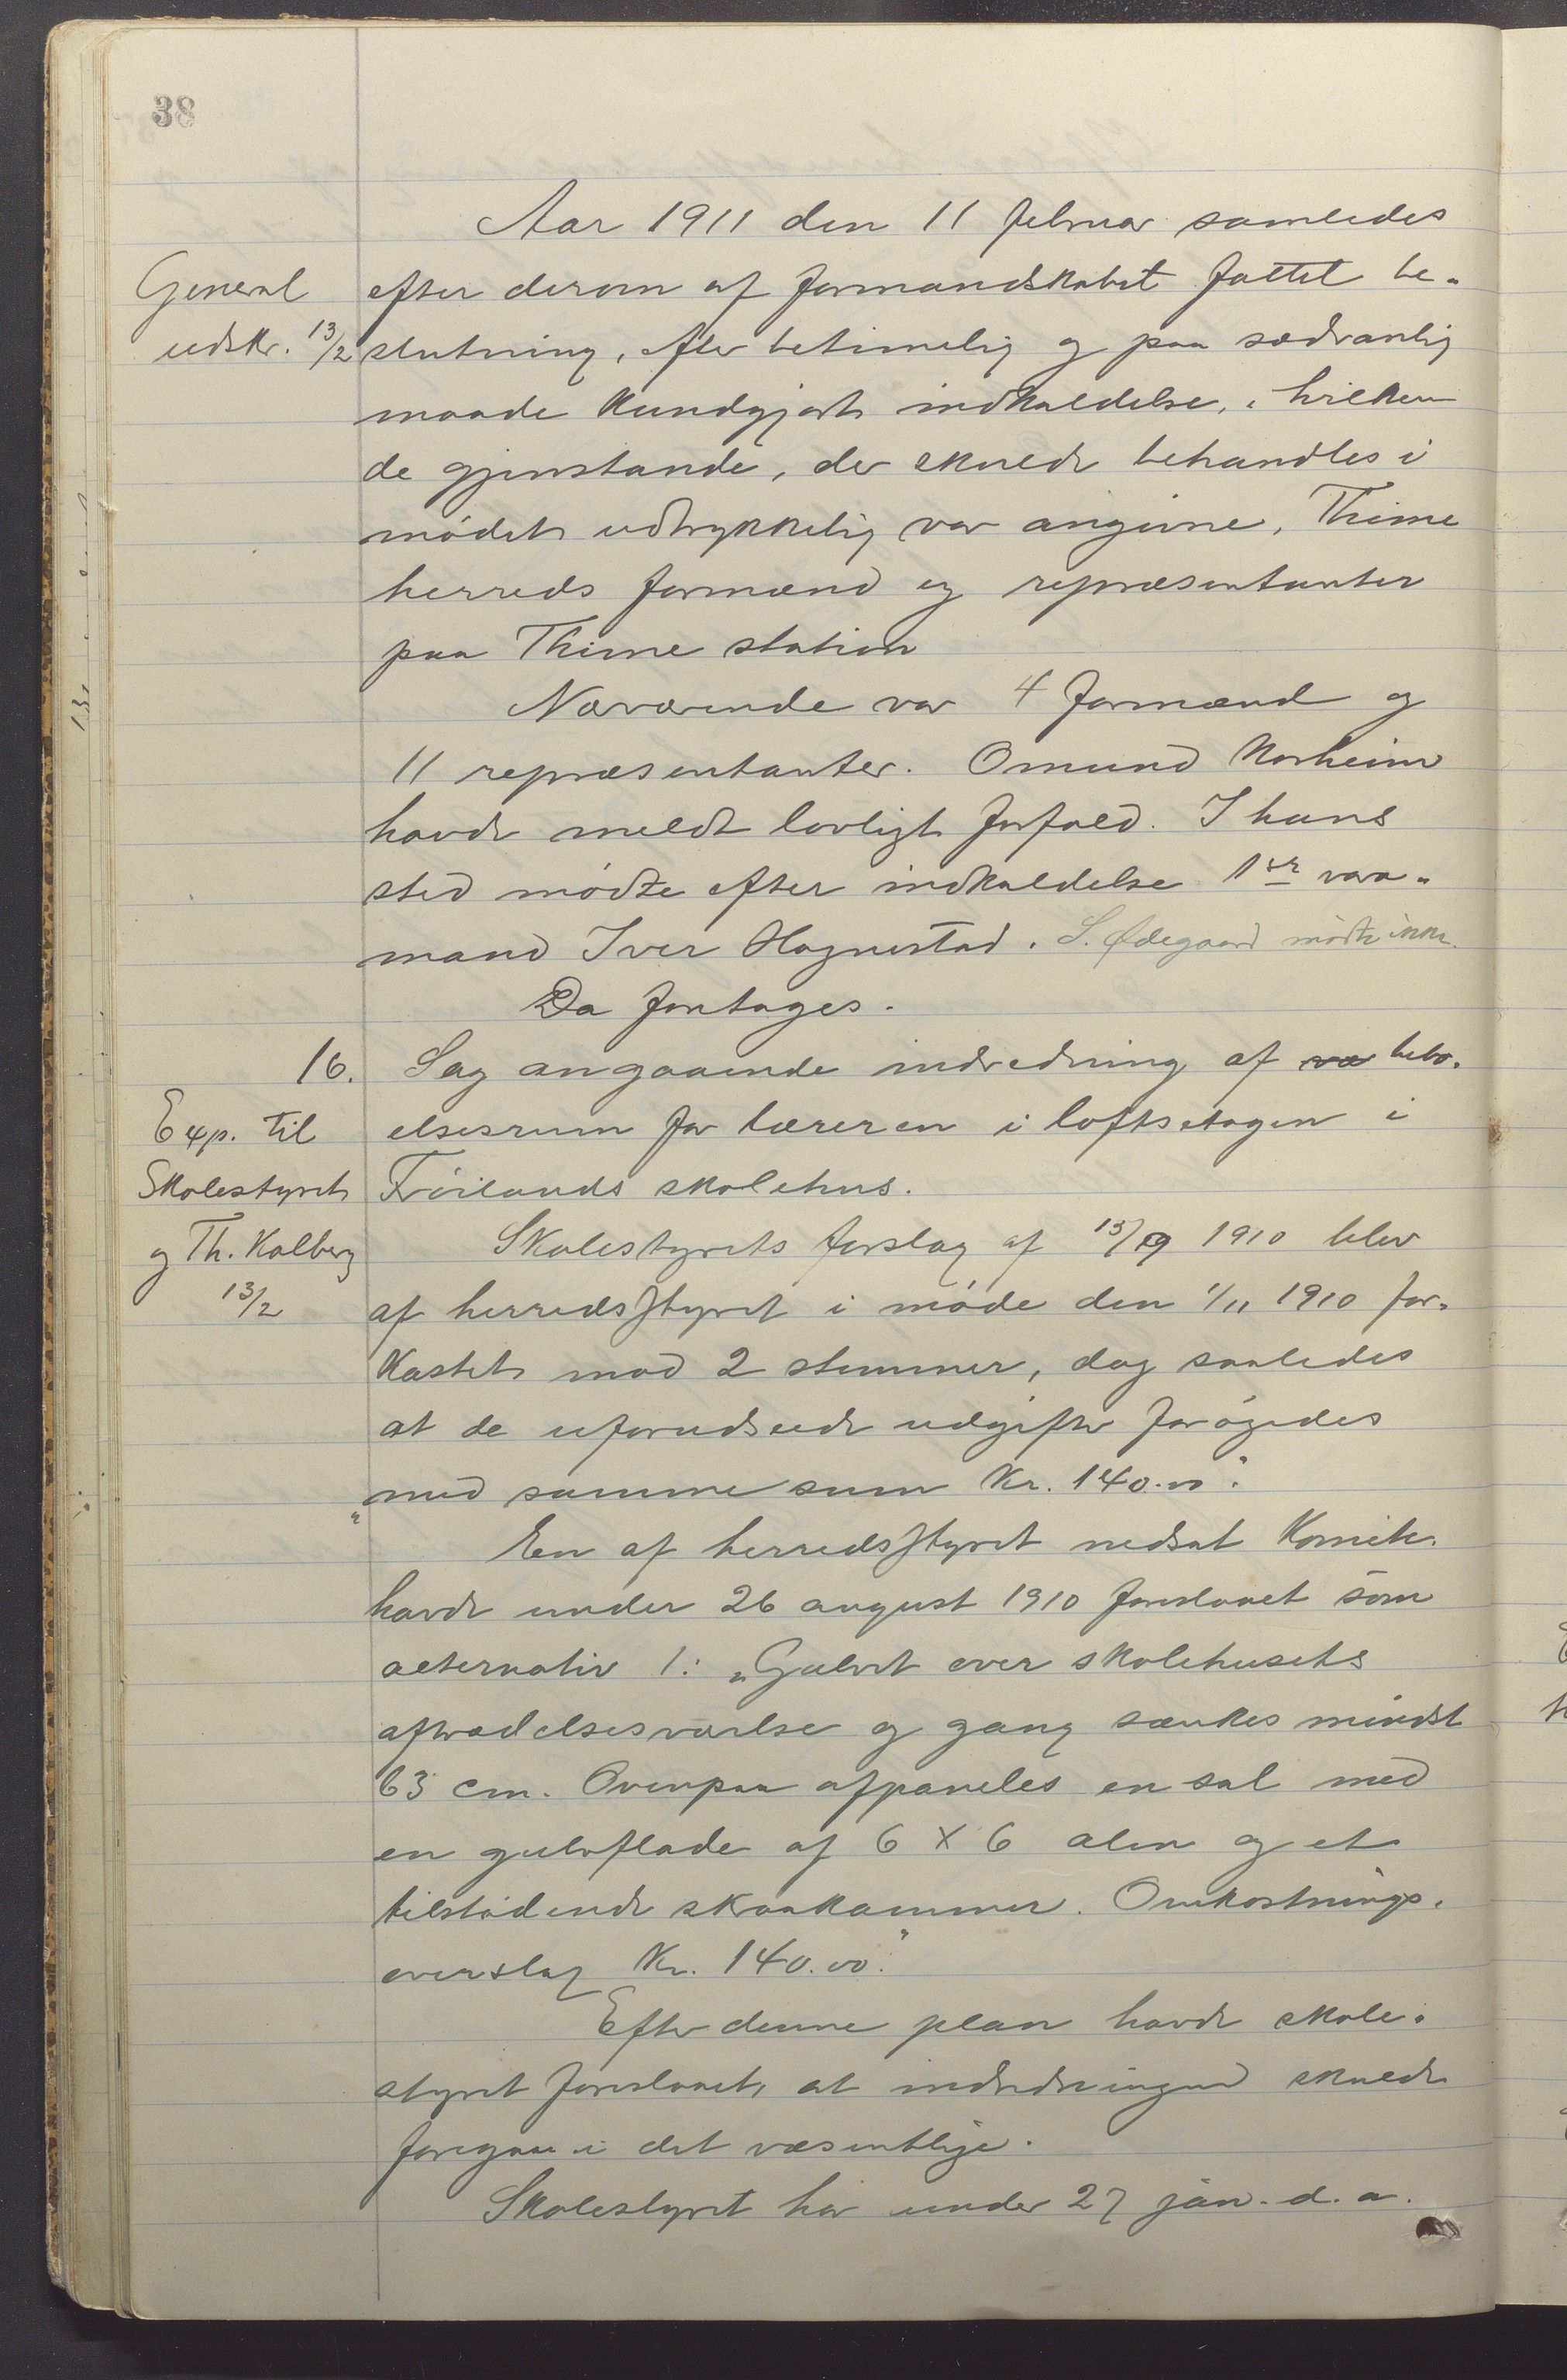 38
Aar 1911 den 11 februar samledes
General
udskr. 13/2
efter derom af formandskabet fattet be-
slutning, efter betimelig og paa sædvanlig
maade kundgjort indkaldelse, i hvilken
de gjenstande, der skulde behandles i
mødet udtrykkelig var angivne, Thime
herreds formænd og repræsentanter
paa Thime station
Nærværende var 4 formænd og
11 repræsentanter. Omund Norheim
havde meldt lovligt forfald. I hans
sted mødte efter indkaldelse 1ste vara-
mand Iver Hognestad. S. Ødegaard mødte ikke.
Da foretages.
16.
Exp. til
Skolestyret
og Th. Kalberg
13/2
Sag angaaende indredning af væ bebo-
elsesrum for læreren i loftsetagen i
Frøilands skolehus.
Skolestyrets forslag af 13/9 1910 blev
af herredsstyret i møde den 1/11 1910 for-
kastet mod 2 stemmer, dog saaledes
at de uforudseede udgifter forøgedes
"med samme sum Kr. 140.00".
En af herredsstyret nedsat Komite
havde under 26 august 1910 foreslaaet som
alternativ 1: "Gulvet over skolehusets
aftrædelsesværelse og gang sænkes mindst
63 cm. Ovenpaa afpaneles en sal med
en gulvflade af 6 X 6 alen og et
tilstødende skraakammer. Omkostnings-
overslag Kr. 140.00."
Efter denne plan havde skole-
styret foreslaaet, at indredningen skulde
foregaa i det væsentlige.
Skolestyret har under 27 jan. d. a.